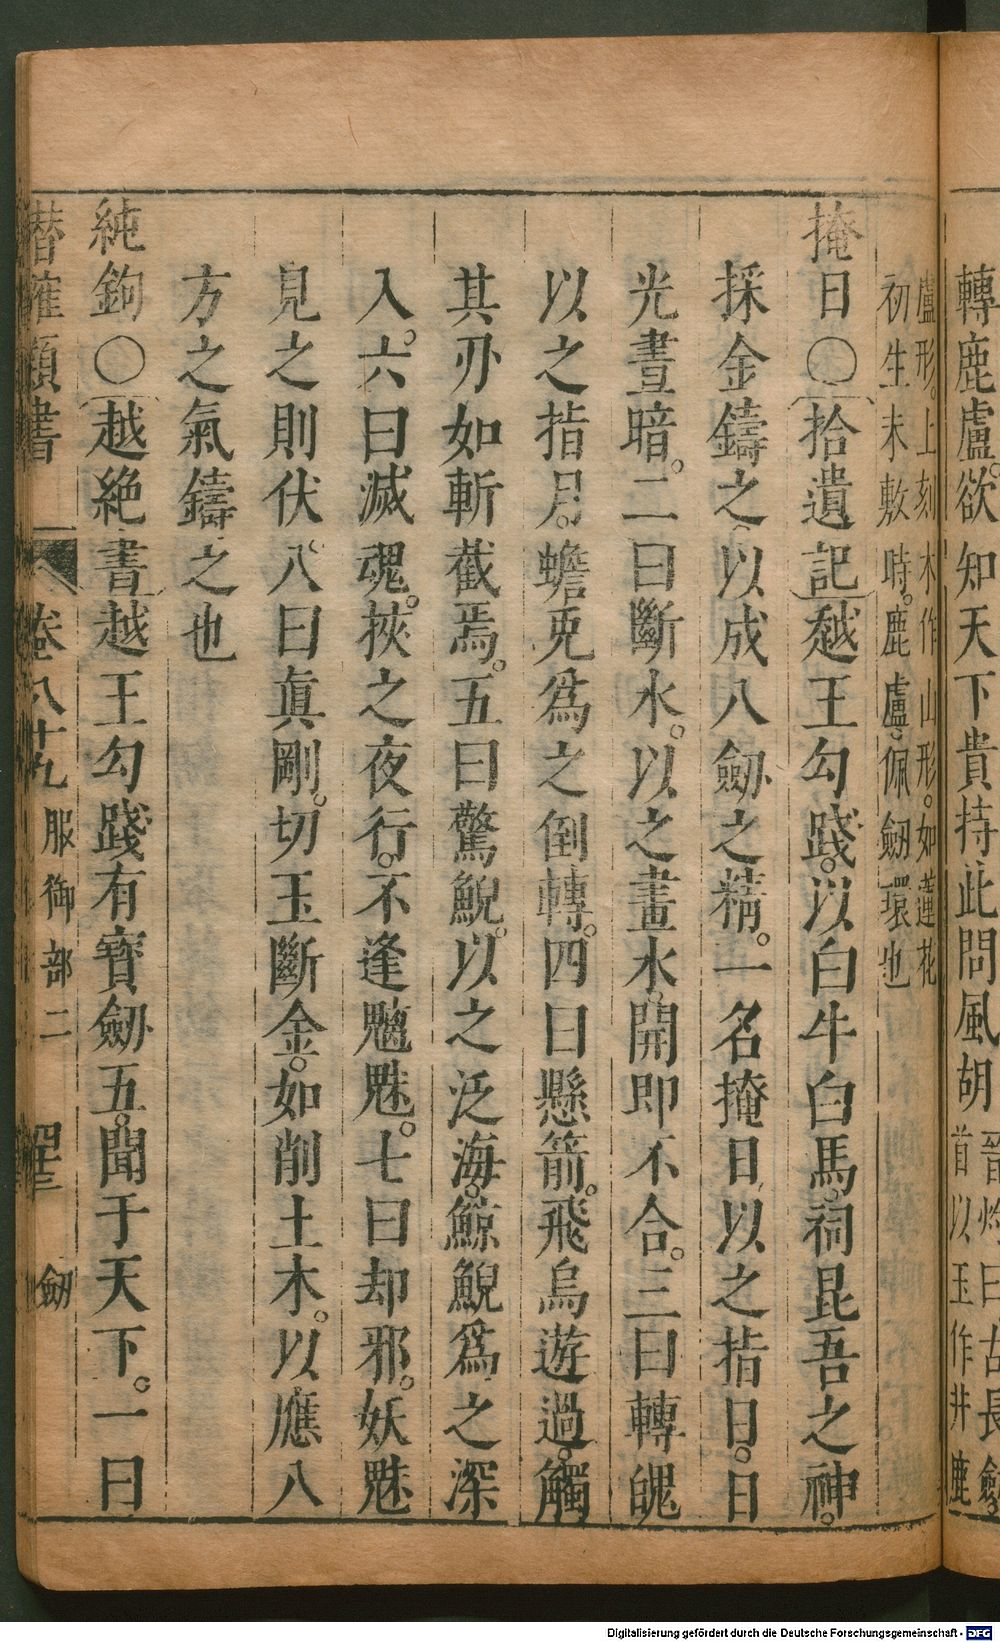 轉鹿盧。欲知天下貴持此問風胡
晉灼曰古長劒。
首以玉作井鹿
盧形。上刻木作山形。如蓮花
初生未敷時。鹿盧。佩劒環也
掩日〇拾遺記越王勾踐。以白牛白馬。祠昆吾之神。
採金鑄之以成八劒之精。一名掩日以之指日。日
光晝暗。二曰斷水。以之畫水。開即不合。三曰轉魄
以之指月。蟾兔爲之倒轉。四曰懸箭。飛鳥遊過。觸
其刃如斬截焉。五曰驚鯢。以之泛海。鯨鯢爲之深
入。六曰滅魂。挾之夜行。不逢魑魅。七曰却邪。妖魅
見之則伏。八曰眞剛。切玉斷金。如削土木。以應八
方之氣鑄之也
純鉤〇越絶書越王勾踐有寶劒五。聞于天下。一曰
潛確類書 卷八十九 服御部二 劒
Digitalisierung gefördert durch die Deutsche Forschungsgemeinschaft - DFG